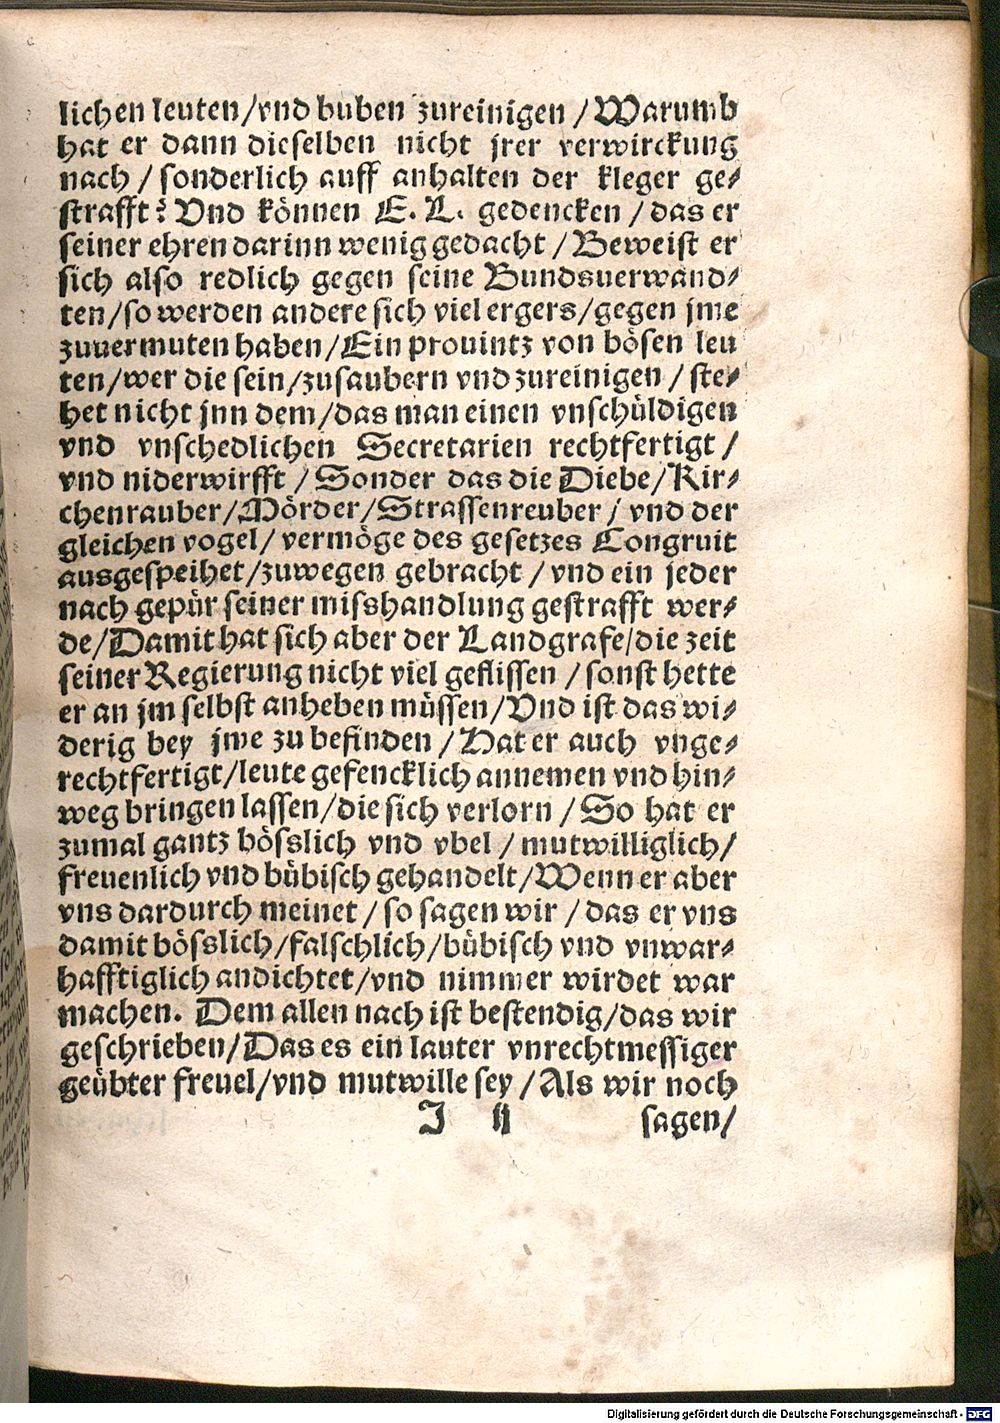 lichen leuten/vnd buben zureinigen/Warumb
hat er dann dieselben nicht jrer verwirckung
nach/sonderlich auff anhalten der kleger ge-
strafft? Vnd können E. L. gedencken/das er
seiner ehren darinn wenig gedacht/Beweist er
sich also redlich gegen seine Bundsuerwand-
ten/so werden andere sich viel ergers/gegen jme
zuuermuten haben/Ein prouintz von bösen leu
ten/wer die sein/zusaubern vnd zureinigen/ste-
het nicht jnn dem/das man einen vnschüldigen
vnd vnschedlichen Secretarien rechtfertigt/
vnd niderwirfft/Sonder das die Diebe/Kir-
chenrauber/Mörder/Strassenreuber/vnd der
gleichen vogel/vermöge des gesetzes Congruit
ausgespeihet/zuwegen gebracht/vnd ein jeder
nach gepür seiner misshandlung gestrafft wer-
de/Damit hat sich aber der Landgrafe/die zeit
seiner Regierung nicht viel geflissen/sonst hette
er an jm selbst anheben müssen/Vnd ist das wi-
derig bey jme zu befinden/Hat er auch vnge-
rechtfertigt/leute gefencklich annemen vnd hin-
weg bringen lassen/die sich verlorn/So hat er
zumal gantz bösslich vnd vbel/mutwilliglich/
freuenlich vnd bübisch gehandelt/Wenn er aber
vns dardurch meinet/so sagen wir/das er vns
damit bösslich/falschlich/bübisch vnd vnwar-
hafftiglich andichtet/vnd nimmer wirdet war
machen. Dem allen nach ist bestendig/das wir
geschrieben/Das es ein lauter vnrechtmessiger
geübter freuel/vnd mutwille sey/Als wir noch
J ij sagen/
Digitalisierung gefördert durch die Deutsche Forschungsgemeinschaft - DFG